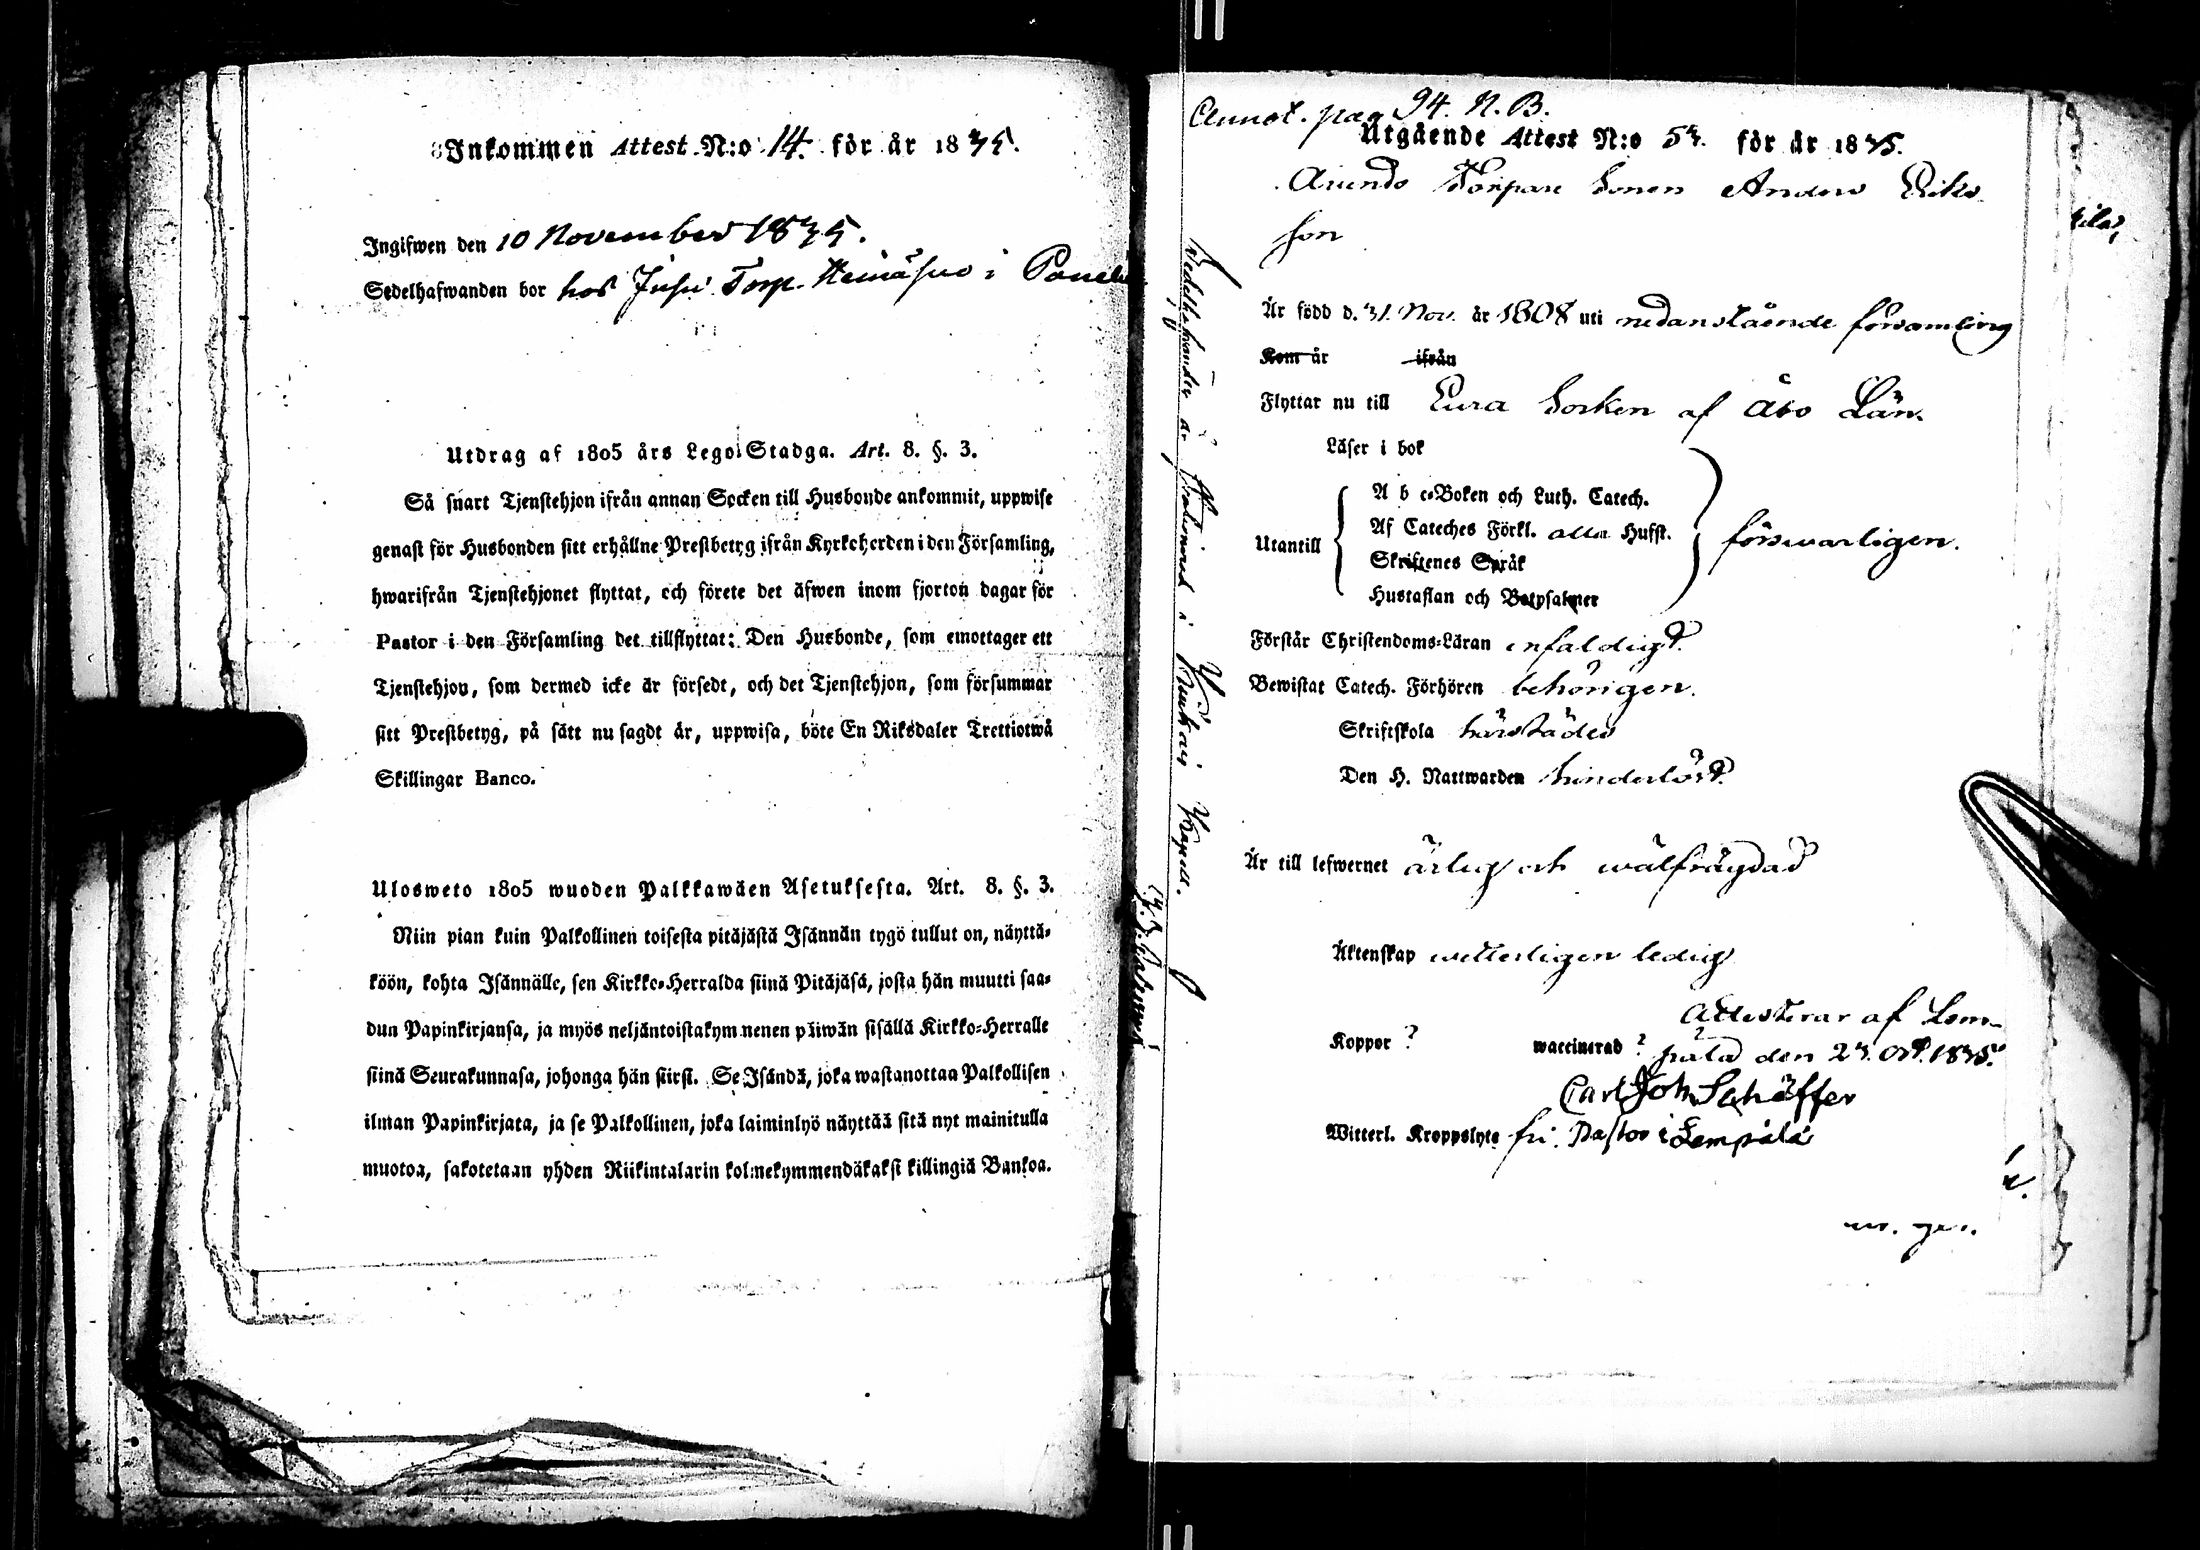 Inkommen Attest N:o 14. för år 1835.
Ingifwen den 10 November 1835.
Sedelhafwanden bor hos Jusu Torp. Heinäsuo i
Utdrag af 1805 års Lego-Stadga. Art. 8. §. 3.
Så snart Tjenstehjon ifrån annan Socken till Husbonde ankommit, uppwise
genast för Husbonden sitt erhållne Prestbetyg ifrån Kyrkoherden i den Församling,
hwarifrån Tjenstehjonet flyttat, och förete det äfwen inom fjorton dagar för
Pastor i den Församling det tillflyttat: Den Husbonde, som emottager ett
Tjenstehjon, som dermed icke är försedt, och det Tjenstehjon, som försummar
sitt Prestbetyg, på sätt nu sagdt är, uppwisa, böte En Riksdaler Trettiotwå
Skillingar Banco.
Ulosweto 1805 wuoden Palkkawäen Asetuksesta. Art. 8. §. 3.
Niin pian kuin Palkollinen toisesta pitäjästä Isännän tygö tullut on, näyttä-
köön, kohta Isännälle, sen Kirkko-Herralda siinä Pitäjäsä, josta hän muutti saa-
dun Papinkirjansa, ja myös neljäntoistakymmenen päiwän sisällä Kirkko-Herralle
siinä Seurakunnasa, johonga hän siirsi. Se Isändä, joka wastanottaa Palkollisen
ilman Papinkirjata, ja se Palkollinen, joka laiminlyö näyttää sitä nyt mainitulla
muotoa, sakotetaan yhden Riikintalarin kolmekymmendäkaksi killingiä Bankoa.
Annot. pag 94. N. B.
Utgående Attest N:o 53. för år 1835.
Torpare Sonen Anders Eriks
son
Är född d. 31. Nov. år 1808 uti nedanstående församling
Kom år ifrån
Flyttar nu till Eura Socken af Åbo Län.
Läser i bok
A b c-Boken och Luth. Catech.
Af Cateches Förkl. alla Hufst.
Utantill försvarligen.
Skriftenes Språk
Hustaflan och Botpsalmer
Förstår Christendoms-Läran enfaldigt.
Bewistat Catech. Förhören behörigen.
Skriftskola härstädes
Den H. Nattwarden hinderlöst.
Är till lefwernet ärlig och wälfrägdad
Äktenskap wetterligen ledig
Attesterar af Lem-
Koppor ? waccinerad ? pälä den 23. Oct. 1835.
Carl Joh. Schäffer
Witterl. Kroppslyte fri. Pastor i Lempälä
Sedelhafwanden är